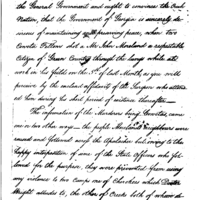 the General Government and ought to convince the Creek
Nation, that the Government of Georgia is sincerely de-
sirous of maintaining and preserving peace, when two
Coweta Fellows shot a Mr. John Moreland a respectable
Citizen of Green County through the lungs while at
work in his field on the 3d of last Month as you will
perceive by the enclosed affidavit of the Surgeon who attend-
ed him during the short period of existence thereafter —
The information of the Murderers being Cowetas, came
in one or two ways — the people Moreland's Neighbours were
roused and followed over the Apalachee but owing to the
happy interposition of one of the State Officers who fol-
lowed for the purpose, they were prevented from using
any violence to two camps one of Cherokees which Doctor
Wright attended to, the other of Creeks both of whom de-